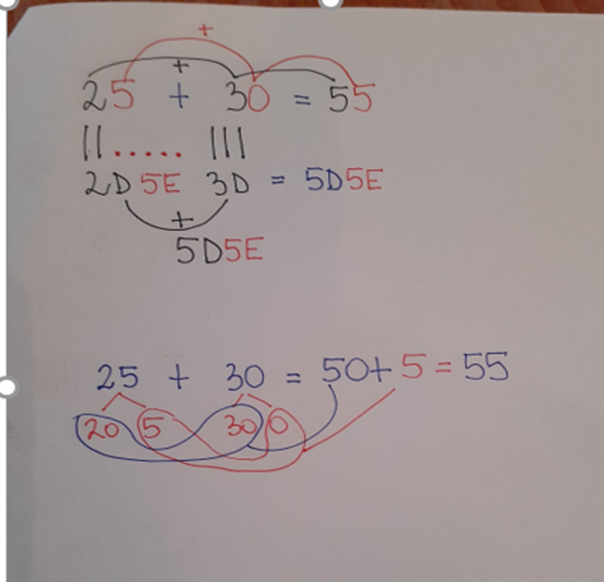 +
+
25 + 30 = 55
||..... |||
2D 5E 3D = 5D5E
+
5D5E
25 + 30 = 50+5=55
20 5 30 0